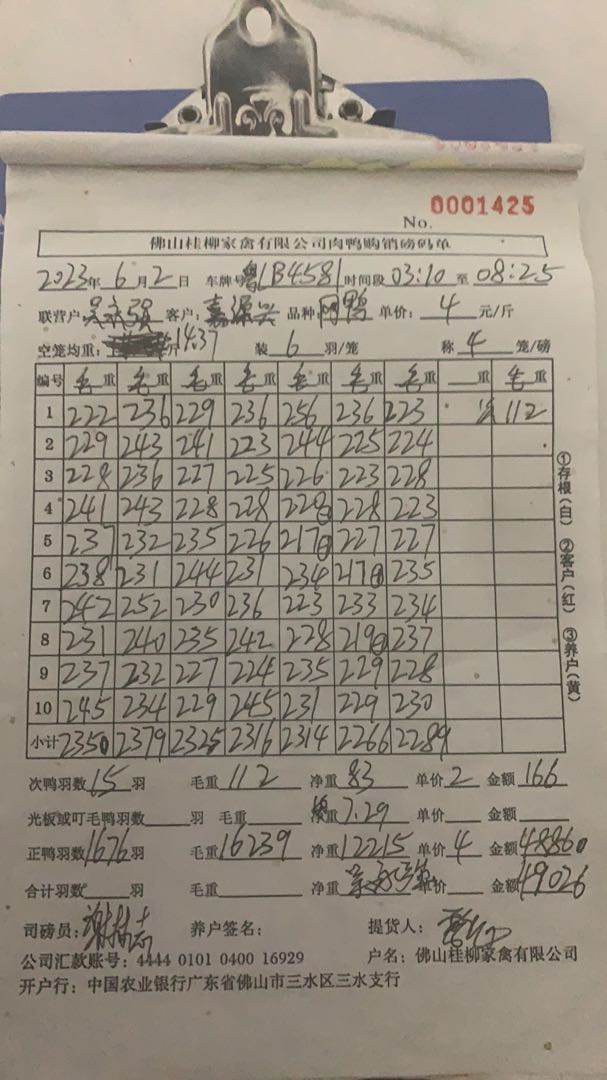 No. 0001425
佛山桂柳家禽有限公司肉鸭购销磅码单
2023年 6月 2日 车牌号 粤LB4581 时间段 03:10 至 08:25
联营户: 吴永强 客户: 嘉源兴 品种: 单价: 4 元/斤
空笼均重: 斤 14.37 装 6 羽/笼 称 4 笼/磅
编号 毛重 毛重 毛重 毛重 毛重 毛重 毛重 重 毛重
1 222 236 229 236 256 236 223 次 112
2 229 243 241 223 244 225 224
3 228 236 227 225 226 223 228
4 241 243 228 228 220 228 223
5 237 232 235 226 217 227 227
6 238 231 244 231 234 217 235
7 242 252 230 236 223 233 234
8 231 240 235 242 228 219 237
9 237 232 227 224 235 229 228
10 245 234 229 245 231 229 230
小计 2350 2379 2325 2316 2314 2266 2289
①存根(白) ②客户(红) ③养户(黄)
次鸭羽数 15 羽 毛重 112 净重 83 单价 2 金额 166
光板或叮毛鸭羽数 羽 毛重 净重 7.29 单价 金额
正鸭羽数 1676 羽 毛重 16239 净重 12215 单价 4 金额 48860
合计羽数 羽 毛重 净重 单价 金额 49026
司磅员: 养户签名: 提货人:
公司汇款账号: 4444 0101 0400 16929 户名: 佛山桂柳家禽有限公司
开户行: 中国农业银行广东省佛山市三水区三水支行